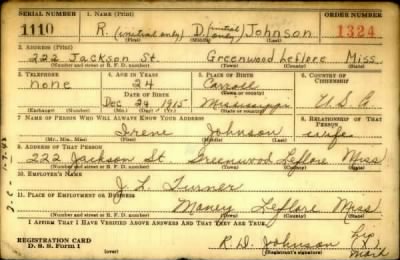 SERIAL NUMBER 1. NAME (Print) ORDER NUMBER
1110 R. (initial only) D. (initial only) Johnson 1324
(First) (Middle) (Last)
2. ADDRESS (Print)
222 Jackson St. Greenwood Leflore Miss.
(Number and street or R. F. D. number) (Town) (County) (State)
3. TELEPHONE 4. AGE IN YEARS 5. PLACE OF BIRTH 6. COUNTRY OF CITIZENSHIP
none 24 Carroll
DATE OF BIRTH (Town or county)
Dec 24 1915 Mississippi U.S.A.
(Exchange) (Number) (Mo.) (Day) (Yr.) (State or country)
7. NAME OF PERSON WHO WILL ALWAYS KNOW YOUR ADDRESS 8. RELATIONSHIP OF THAT PERSON
Irene Johnson wife
(Mr., Mrs., Miss) (First) (Middle) (Last)
9. ADDRESS OF THAT PERSON
222 Jackson St Greenwood Leflore Miss
(Number and street or R. F. D. number) (Town) (County) (State)
10. EMPLOYER'S NAME
J. L. Turner
11. PLACE OF EMPLOYMENT OR BUSINESS
Money Leflore Miss
(Number and street or R. F. D. number) (Town) (County) (State)
I AFFIRM THAT I HAVE VERIFIED ABOVE ANSWERS AND THAT THEY ARE TRUE.
REGISTRATION CARD
D. S. S. Form 1 (over)
R. D. Johnson his (X) mark
(Registrant's signature)